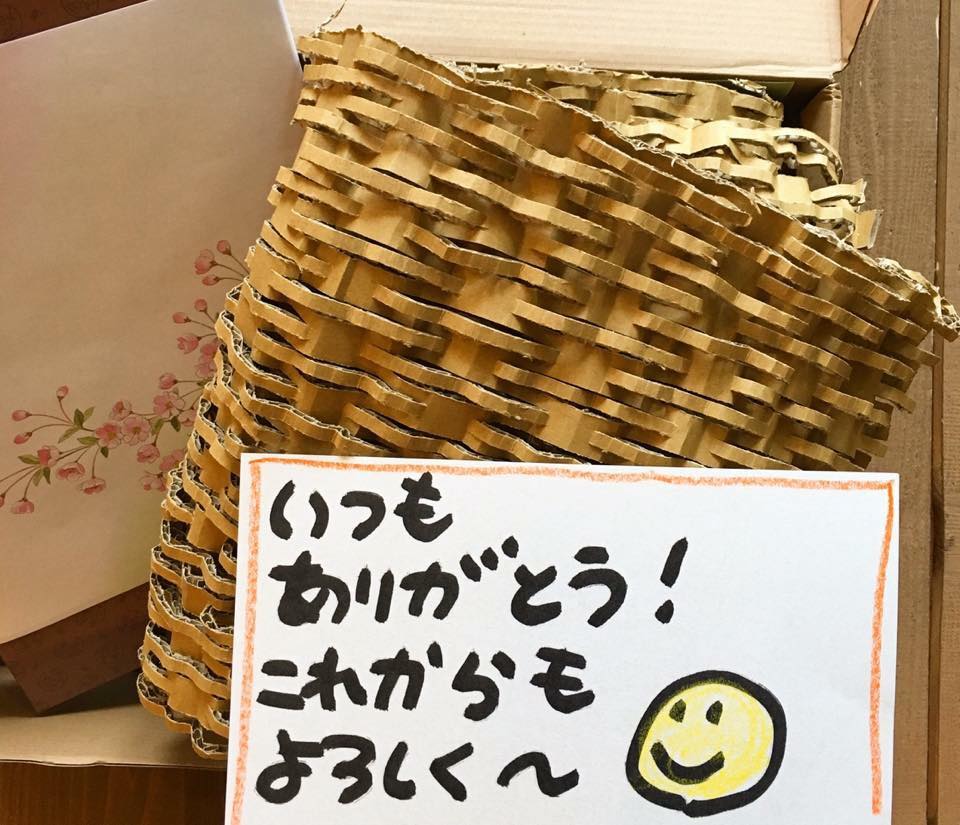 いつも
ありがとう！
これからも
よろしく〜